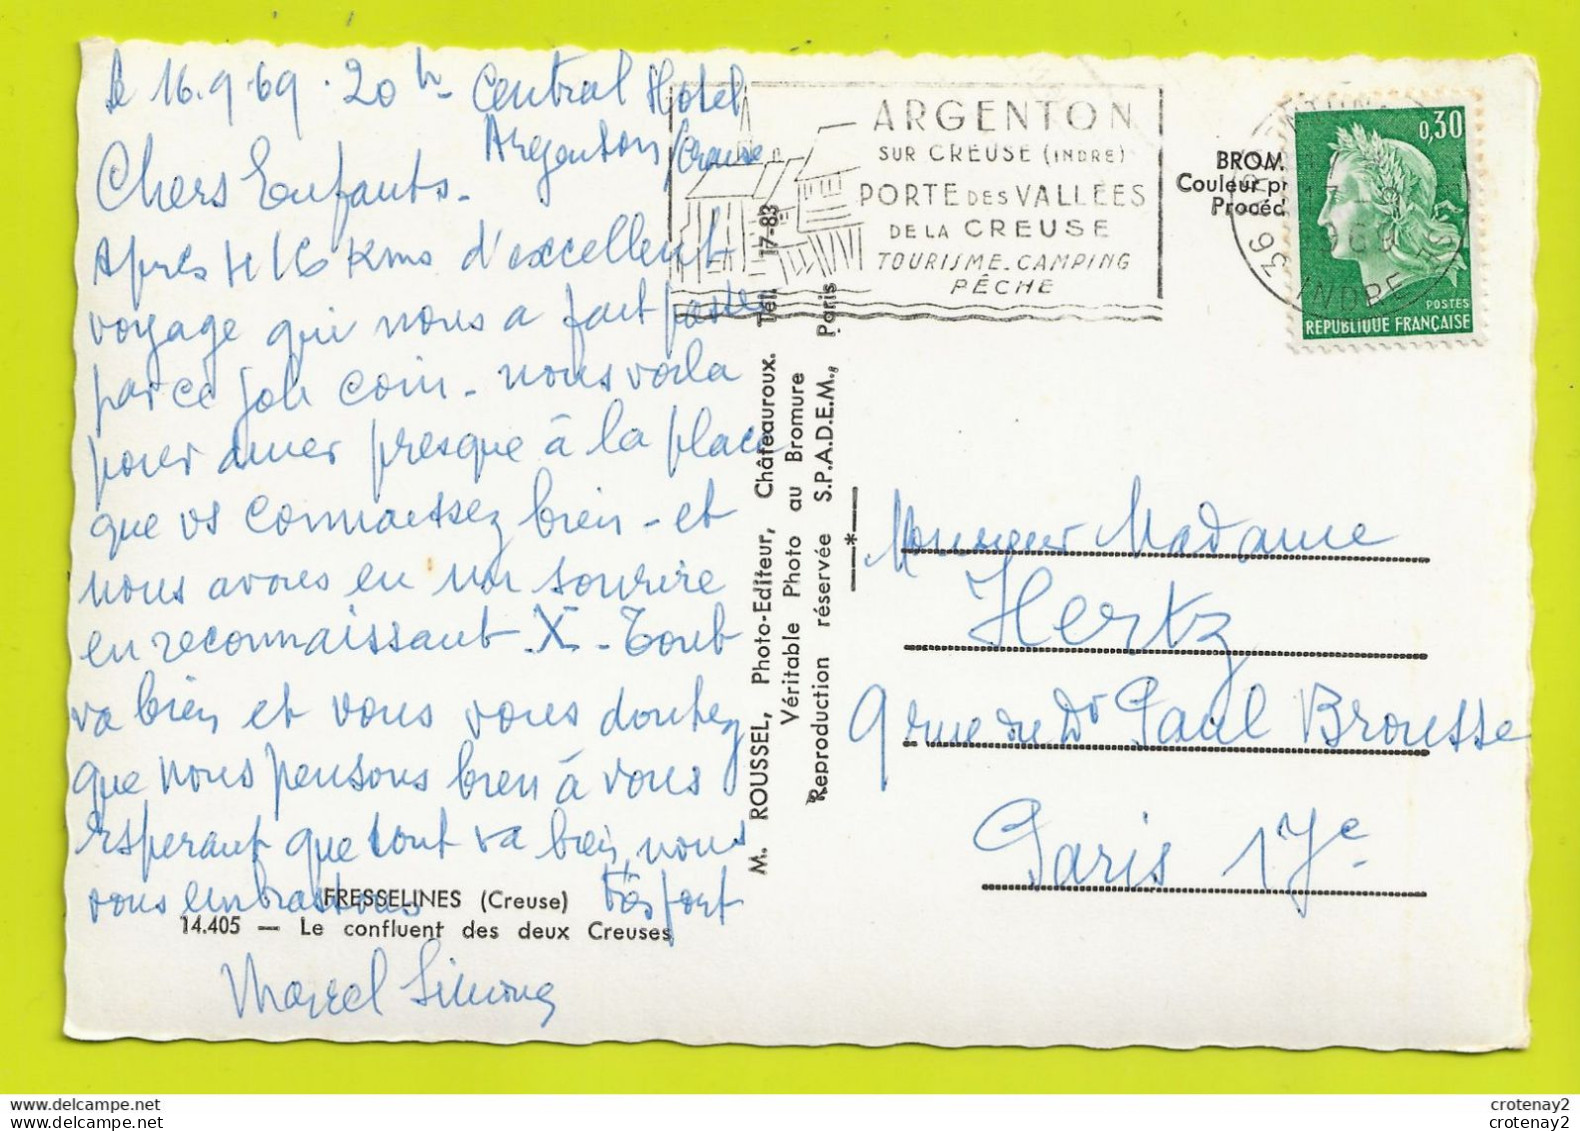 le 16.9.69. 20h Central Hotel
Argenton / Creuse
Chers Enfants.
Après 416 kms d'excellent
voyage qui nous a fait passer
par ce joli coin - nous voila
pour diner presque à la place
que vs connaissez bien - et
nous avons eu un sourire
en reconnaissant X - Tout
va bien et vous vous doutez
que nous pensons bien à vous
Espérant que tout va bien, nous
vous embrassons très fort
Marcel Simone
FRESSELINES (Creuse)
14.405 — Le confluent des deux Creuses
M. ROUSSEL, Photo-Editeur, Châteauroux. Tél. 17-83
Véritable Photo au Bromure
Reproduction réservée S.P.A.D.E.M., Paris
*
ARGENTON
SUR CREUSE (INDRE)
PORTE DES VALLÉES
DE LA CREUSE
TOURISME. CAMPING
PÊCHE
BROM
Couleur p
Procéd
36 INDRE
0,30
POSTES
REPUBLIQUE FRANÇAISE
Monsieur Madame
Hertz
9 rue du Dr Paul Brousse
Paris 17e
crotenay2
crotenay2
crotenay2
crotenay2